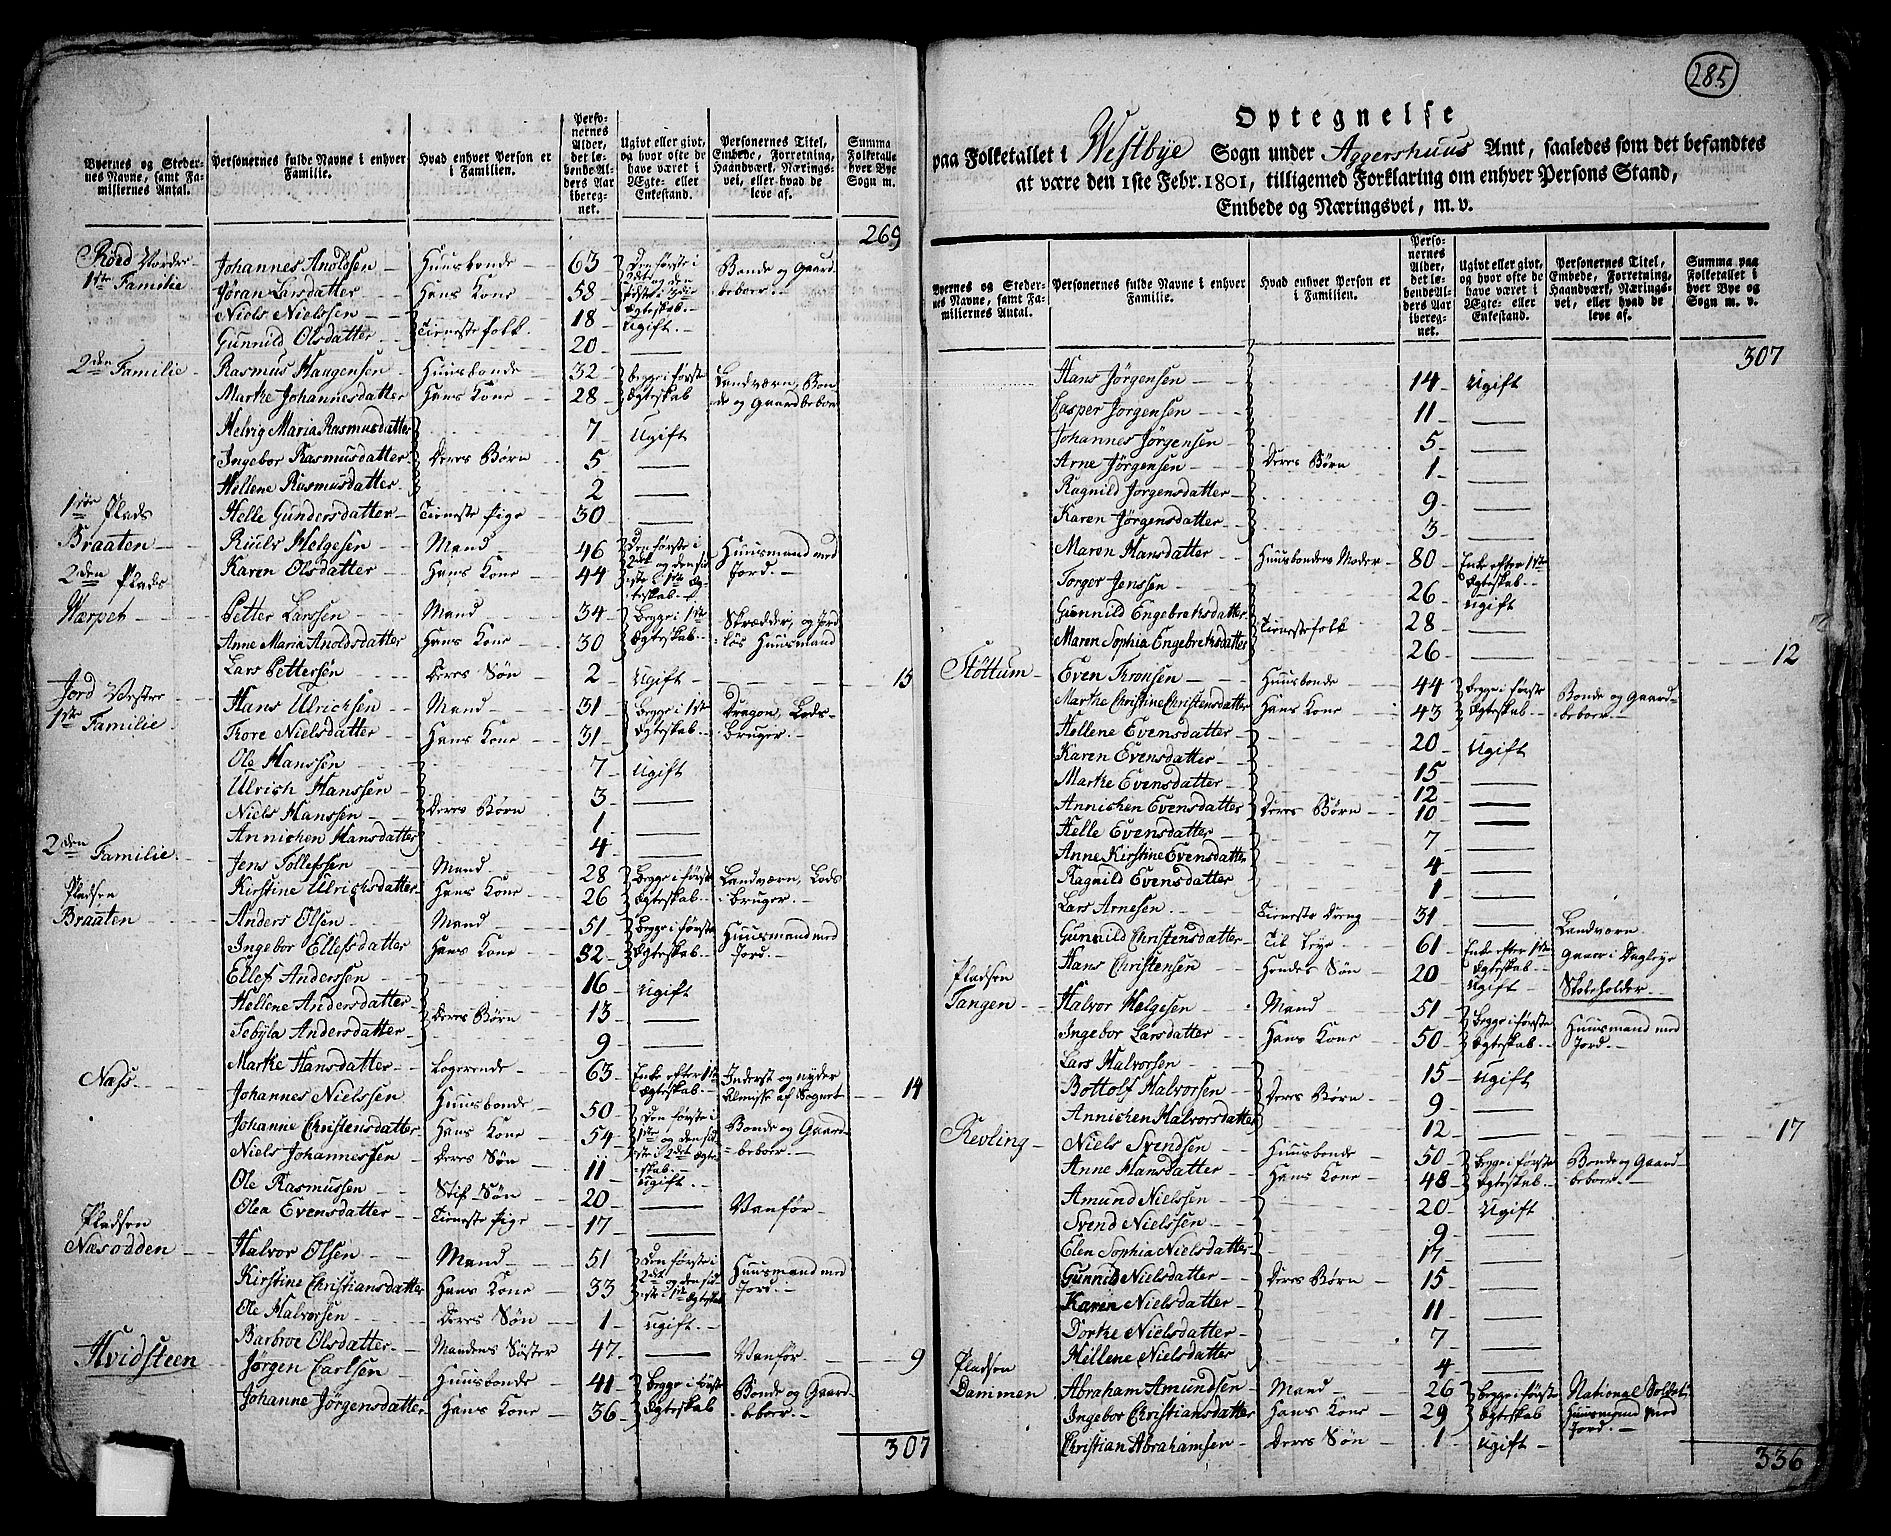 285
Byernes og Steder-
nes Navne, samt Fa-
miliernes Antal.
Personernes fulde Navne i enhver
Familie.
Hvad enhver Person er
i Familien.
Perso-
nernes
Alder,
det le-
bende Al-
ders Aar
ibereg-
net.
Ugivt eller givt,
og hvor ofte de
have været i
Ægte- eller
Enkestand.
Personernes Titel,
Embede, Forretning,
Haandværk, Nærings-
vei, eller hvad de
leve af.
Summa
Folketallet
hver Bye
Sogn m.
269
Johannes Anoldsen Huusbonde 63 Den første i Bonde og Gaard-
1ste Familie Jøran Larsdatter Hans Kone 58 beboer
Niels Nielssen 18 Ugift
Gunnild Olsdatter Tienestefolk 20 —
2den Familie Rasmus Haagensen Huusbonde 32 Begge i første Landværn, Bon
Marthe Johannesdatter Hans Kone 28 Ægteskab de og Gaardbeboer
Helvig Maria Rasmusdatter 7 Ugift
Ingebor Rasmusdatter Deres Børn 5 —
Hellene Rasmusdatter 2 —
1ste Plads Helle Gundersdatter Tieneste Pige 30 —
Braaten Helgesen Mand 46 Den første i Huusmand med
2den Plads Karen Olsdatter Hans Kone 44 Jord
Petter Larssen Mand 34 Begge i 1ste Skrædder, og Jord
Anne Maria Anoldsdatter Hans Kone 30 Ægteskab løs Huusmand
Lars Pettersen Deres Søn 2 Ugift 15
Jord Vestre Hans Ulrichsen Mand 31 Begge i 1ste Dragon, Lods-
1ste Familie Tore Nielsdatter Hans Kone 31 Ægteskab Bruger
Ole Hanssen 7 Ugift
Ulrich Hanssen 3 —
Niels Hanssen Deres Børn 1 —
Annichen Hansdatter 4 —
2den Familie Jens Tollefssen Mand 28 Begge i første Landværn, Lods
Pladsen Kirstine Ulrichsdatter Hans Kone 26 Ægteskab Bruger
Braaten Anders Olsen Mand 51 Begge i første Huusmand med
Ingebor Ellefsdatter Hans Kone 52 Ægteskab Jord
Ellef Anderssen 16 Ugift
Hellene Andersdatter Deres Børn 13 —
Sebÿla Andersdatter 9 —
Marthe Hansdatter Logerende 63 Enke efter 1ste Inderst og nyder
Næss Ægteskab Almisse af Sognet 14
Johannes Nielssen Huusbonde 50 Den første i
Johanne Christensdatter Hans Kone 54 1ste og den sid- Bonde og Gaard-
Niels Johannessen Deres Søn 11 ste i 2det Ægte- beboer
Ole Rasmussen Stif Søn 20 skab. Ugift
Pladsen Olea Evensdatter Tieneste Pige 17 — Vanför
Næsodden Halvor Olsen Mand 51 Den første i
Kirstine Christiansdatter Hans Kone 33 2det og den sid- Huusmand med
Ole Halvorsen Deres Søn 1 Ugift Jord
Barbroe Olsdatter Mandens Søster 47 — Vanför 9
Hvidsteen Jørgen Carlsen Huusbonde 41 Begge i første Bonde og Gaard-
Johanne Jørgensdatter Hans Kone 36 Ægteskab beboer
307
Optegnelse
paa Folketallet i Westbye Sogn under Aggershuus Amt, saaledes som det befandtes
at være den 1ste Febr. 1801, tilligemed Forklaring om enhver Persons Stand,
Embede og Næringsvei, m. v.
Byernes og Steder-
nes Navne, samt Fa-
miliernes Antal.
Personernes fulde Navne i enhver
Familie.
Hvad enhver Person er
i Familien.
Perso-
nernes
Alder,
det le-
bende Al-
ders Aar
ibereg-
net.
Ugivt eller givt,
og hvor ofte de
have været i
Ægte- eller
Enkestand.
Personernes Titel,
Embede, Forretning,
Haandværk, Nærings-
vei, eller hvad de
leve af.
Summa paa
Folketallet i
hver Bye og
Sogn m. v.
307
Hans Jörgensen 14 Ugift
Casper Jörgensen 11 —
Johannes Jörgensen 5 —
Arne Jörgensen Deres Börn 1 —
Ragnild Jörgensdatter 9 —
Karen Jörgensdatter 3 —
Maren Hansdatter Huusbondens Moder 80 Enke efter 1ste
Torger Jenssen 26 Ægteskab Ugift
Gunnild Engebretsdatter Tienestefolk 28 —
Maren Sophia Engebretsdatter 26 — 12
Stöttum Even Tronsen Huusbonde 44 Begge i første Bonde og Gaard-
Marthe Christine Christensdatter Hans Kone 43 Ægteskab beboer
Hellene Evensdatter 20 Ugift
Karen Evensdatter 15 —
Marthe Evensdatter 12 —
Annichen Evensdatter Deres Börn 10 —
Helle Evensdatter 7 —
Anne Kirstine Evensdatter 4 —
Ragnild Evensdatter 1 —
Lars Arnesen Tieneste Dreng 31 — Landværn
Gunnild Christensdatter Til Leye 61 Enke efter 1ste Gaaer i Dagleye
Pladsen Hans Christensen Hendes Sön 20 Ægteskab Ugift Skoleholder
Tangen Halvor Helgesen Mand 51 Begge i første Huusmand med
Ingebor Larsdatter Hans Kone 50 Ægteskab Jord
Lars Halvorsen 15 Ugift
Bottolf Halvorsen Deres Börn 9 —
Annichen Halvorsdatter 12 — 17
Revling Niels Svendsen Huusbonde 50 Begge i første Bonde og Gaard-
Anne Hansdatter Hans Kone 48 Ægteskab beboer
Amund Nielssen 20 Ugift
Svend Nielssen 9 —
Elen Sophia Nielsdatter 17 —
Gunnild Nielsdatter Deres Börn 15 —
Karen Nielsdatter 11 —
Dorthe Nielsdatter 7 —
Pladsen Hellene Nielsdatter 4 —
Dammen Abraham Amundsen Mand 26 Begge i første National Soldat
Ingebor Christiansdatter Hans Kone 29 Ægteskab Huusmand med
Christian Abrahamsen Deres Sön 1 Ugift Jord
336